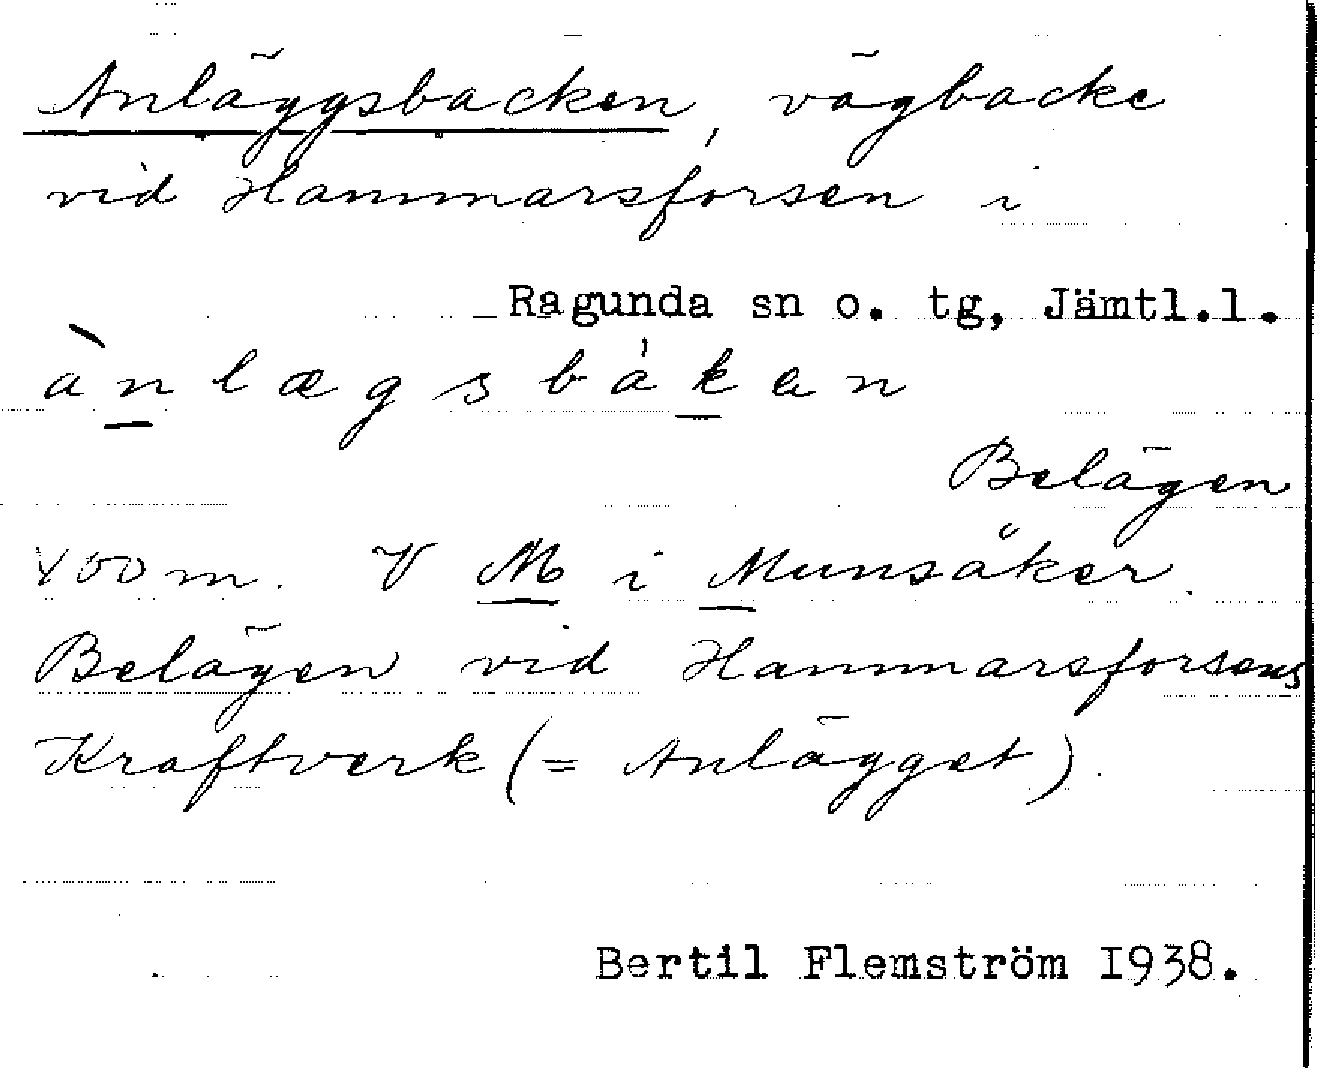 Anläggsbacken, vägbacke
vid Hammarsforsen i
Ragunda sn o. tg, Jämtl.l.
ànlægsbákan
Belägen
400 m. V M i Munsåker.
Belägen vid Hammarsforsens
Kraftverk (= Anlägget).
Bertil Flemström 1938.